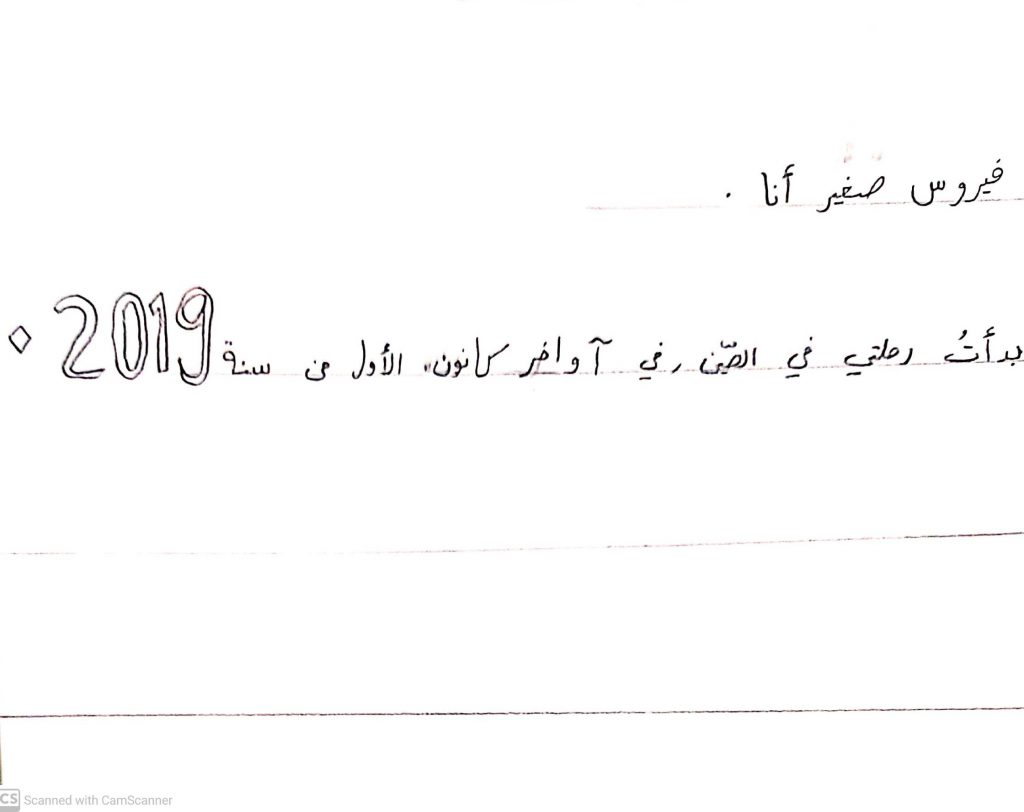 فيروس صغير أنا .
بدأتُ رحلتي في الصّين ، في آواخر كانون الأول من سنة 2019 .
CS Scanned with CamScanner